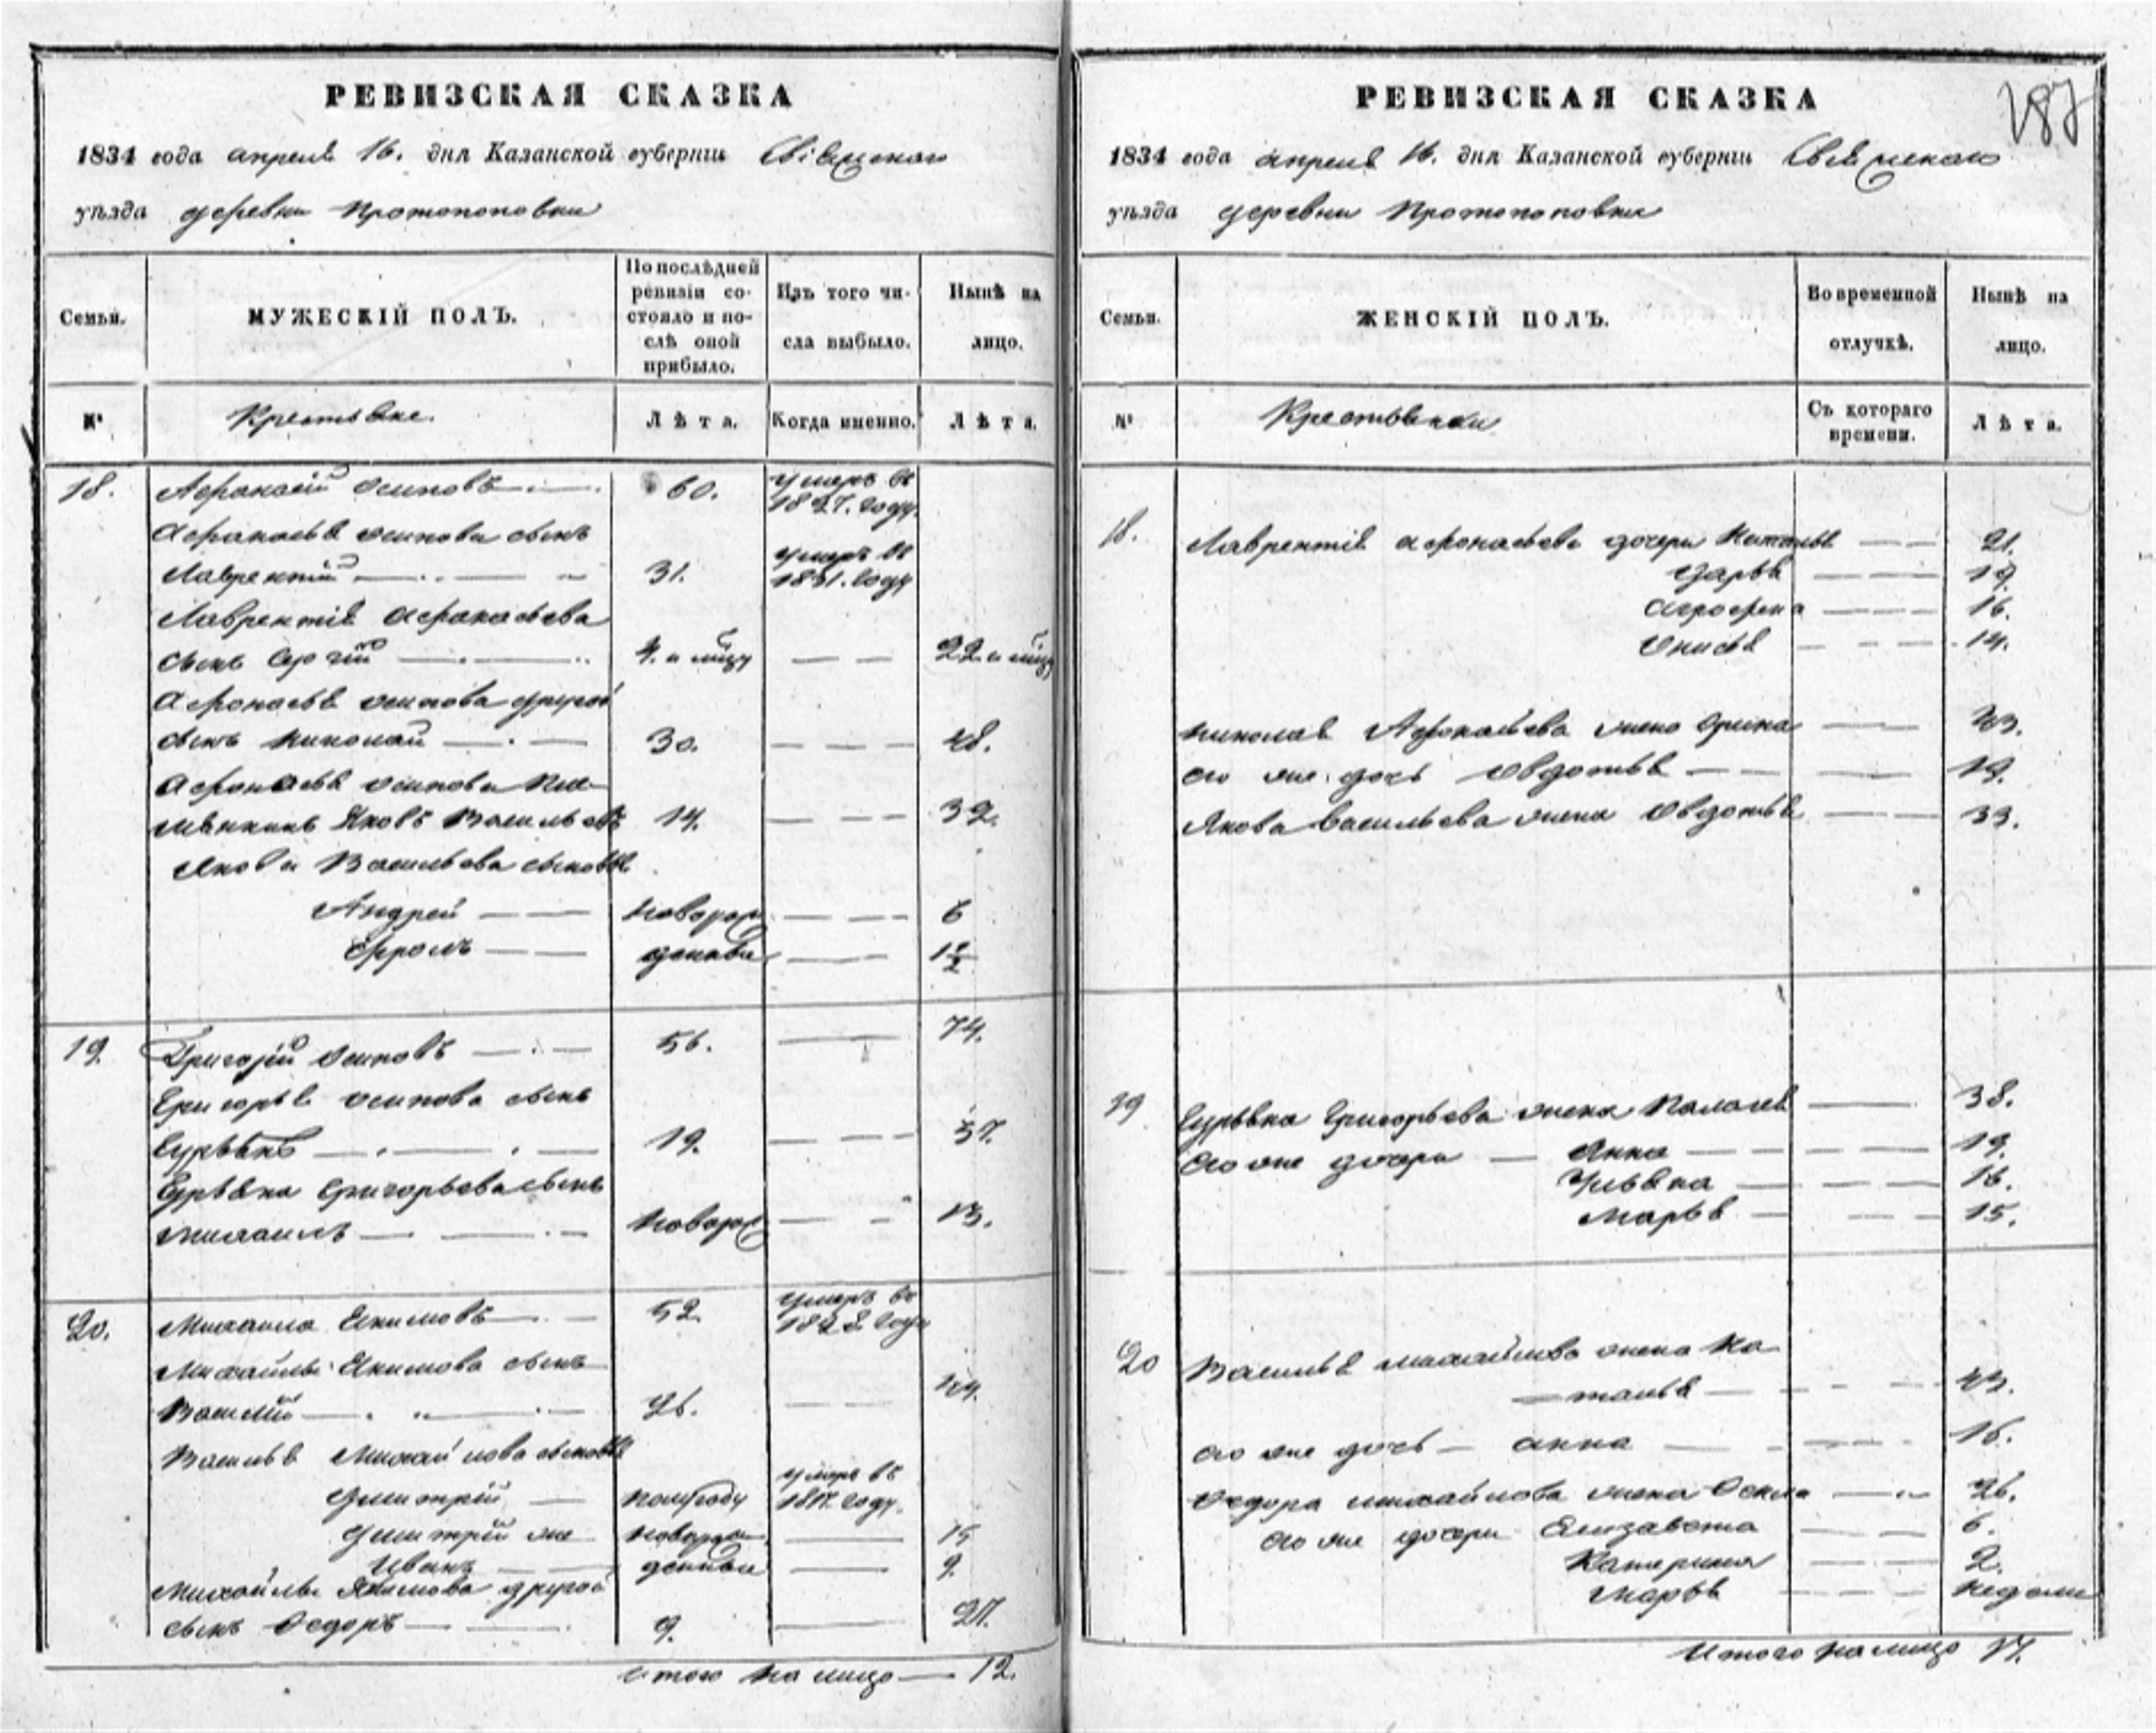 РЕВИЗСКАЯ СКАЗКА
1834 года апреля 16. дня Казанской губерніи Свіяжскаго
уѣзда деревни Протопоповки
Семьи.
МУЖЕСКІЙ ПОЛЪ.
По послѣдней ревизіи состояло и послѣ оной прибыло.
Изъ того числа выбыло.
Нынѣ на лицо.
№
Крестьяне.
Лѣта.
Когда именно.
Лѣта.
18. Афонасій Осиповъ 60. умеръ въ 1827. году.
Афонасья Осипова сынъ
Лаврентій 31. умеръ въ 1831. году
Лаврентія Афонасьева
сынъ Сергій 4. и мѣсяц 22 и мѣсяц
Афонасья Осипова другой
сынъ Николай 30. 48.
Афонасья Осипова пле-
мянникъ Яковъ Васильевъ 14. 32.
Якова Васильева сыновья
Андрей новорож 6
Фролъ денные 1 1/2
19. Григорій Осиповъ 56. 74.
Григорья Осипова сынъ
Гурьянъ 19. 37.
Гурьяна Григорьева сынъ
Михаилъ новорож 13.
20. Михаила Якимовъ 52. умеръ въ 1828 году
Михайлы Якимова сынъ
Василій 26. 44.
Василья Михайлова сыновья
Дмитрій полугоду умеръ въ 1817. году.
Дмитрій же новорож 15
Иванъ денные 9.
Михайлы Якимова другой
сынъ Федоръ 9. 27.
Итого на лицо 12.
187
РЕВИЗСКАЯ СКАЗКА
1834 года апреля 16. дня Казанской губерніи Свіяжскаго
уѣзда деревни Протопоповки
Семьи.
ЖЕНСКІЙ ПОЛЪ.
Во временной отлучкѣ.
Нынѣ на лицо.
№
Крестьянки
Съ котораго времени.
Лѣта.
18. Лаврентія Афонасьева дочери Наталья 21.
Дарья 19.
Агрофена 16.
Онисья 14.
Николая Афонасьева жена Орина 43.
его же дочь Овдотья 19.
Якова Васильева жена Овдотья 33.
19 Гурьяна Григорьева жена Палагея 38.
его же дочери Анна 19.
Ульяна 16.
Марья 15.
20 Василья Михайлова жена На
талья 43.
его же дочь Анна 16.
Федора Михайлова жена Фекла 26.
его же дочери Елизавета 6.
Катерина 2.
Марья недели
Итого на лицо 17.